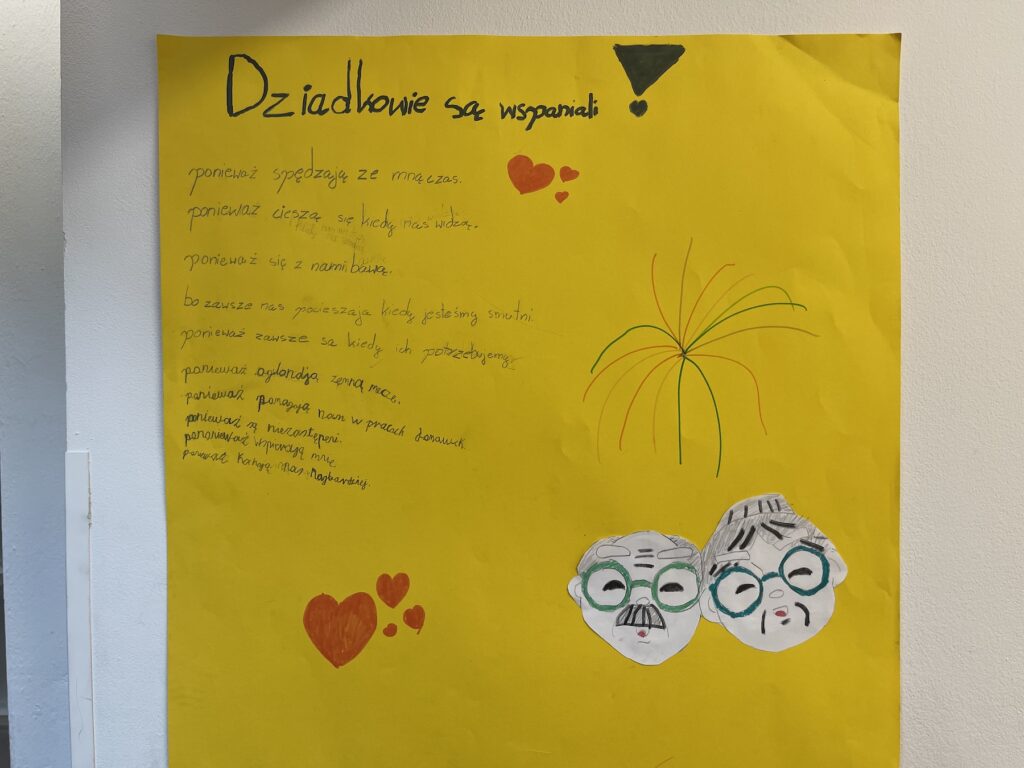 Dziadkowie są wspaniali!
ponieważ spędzają ze mną czas.
ponieważ cieszą się kiedy nas widzą.
ponieważ się z nami bawią.
bo zawsze nas pocieszaja kiedy jesteśmy smutni.
ponieważ zawsze są kiedy ich potrzebujemy.
ponieważ oglondają zemną mecze.
ponieważ pomagają nam w pracach domowych.
ponieważ są niezastępeni.
ponanieważ wspierają mnie
ponieważ kochają nas najbardziej.